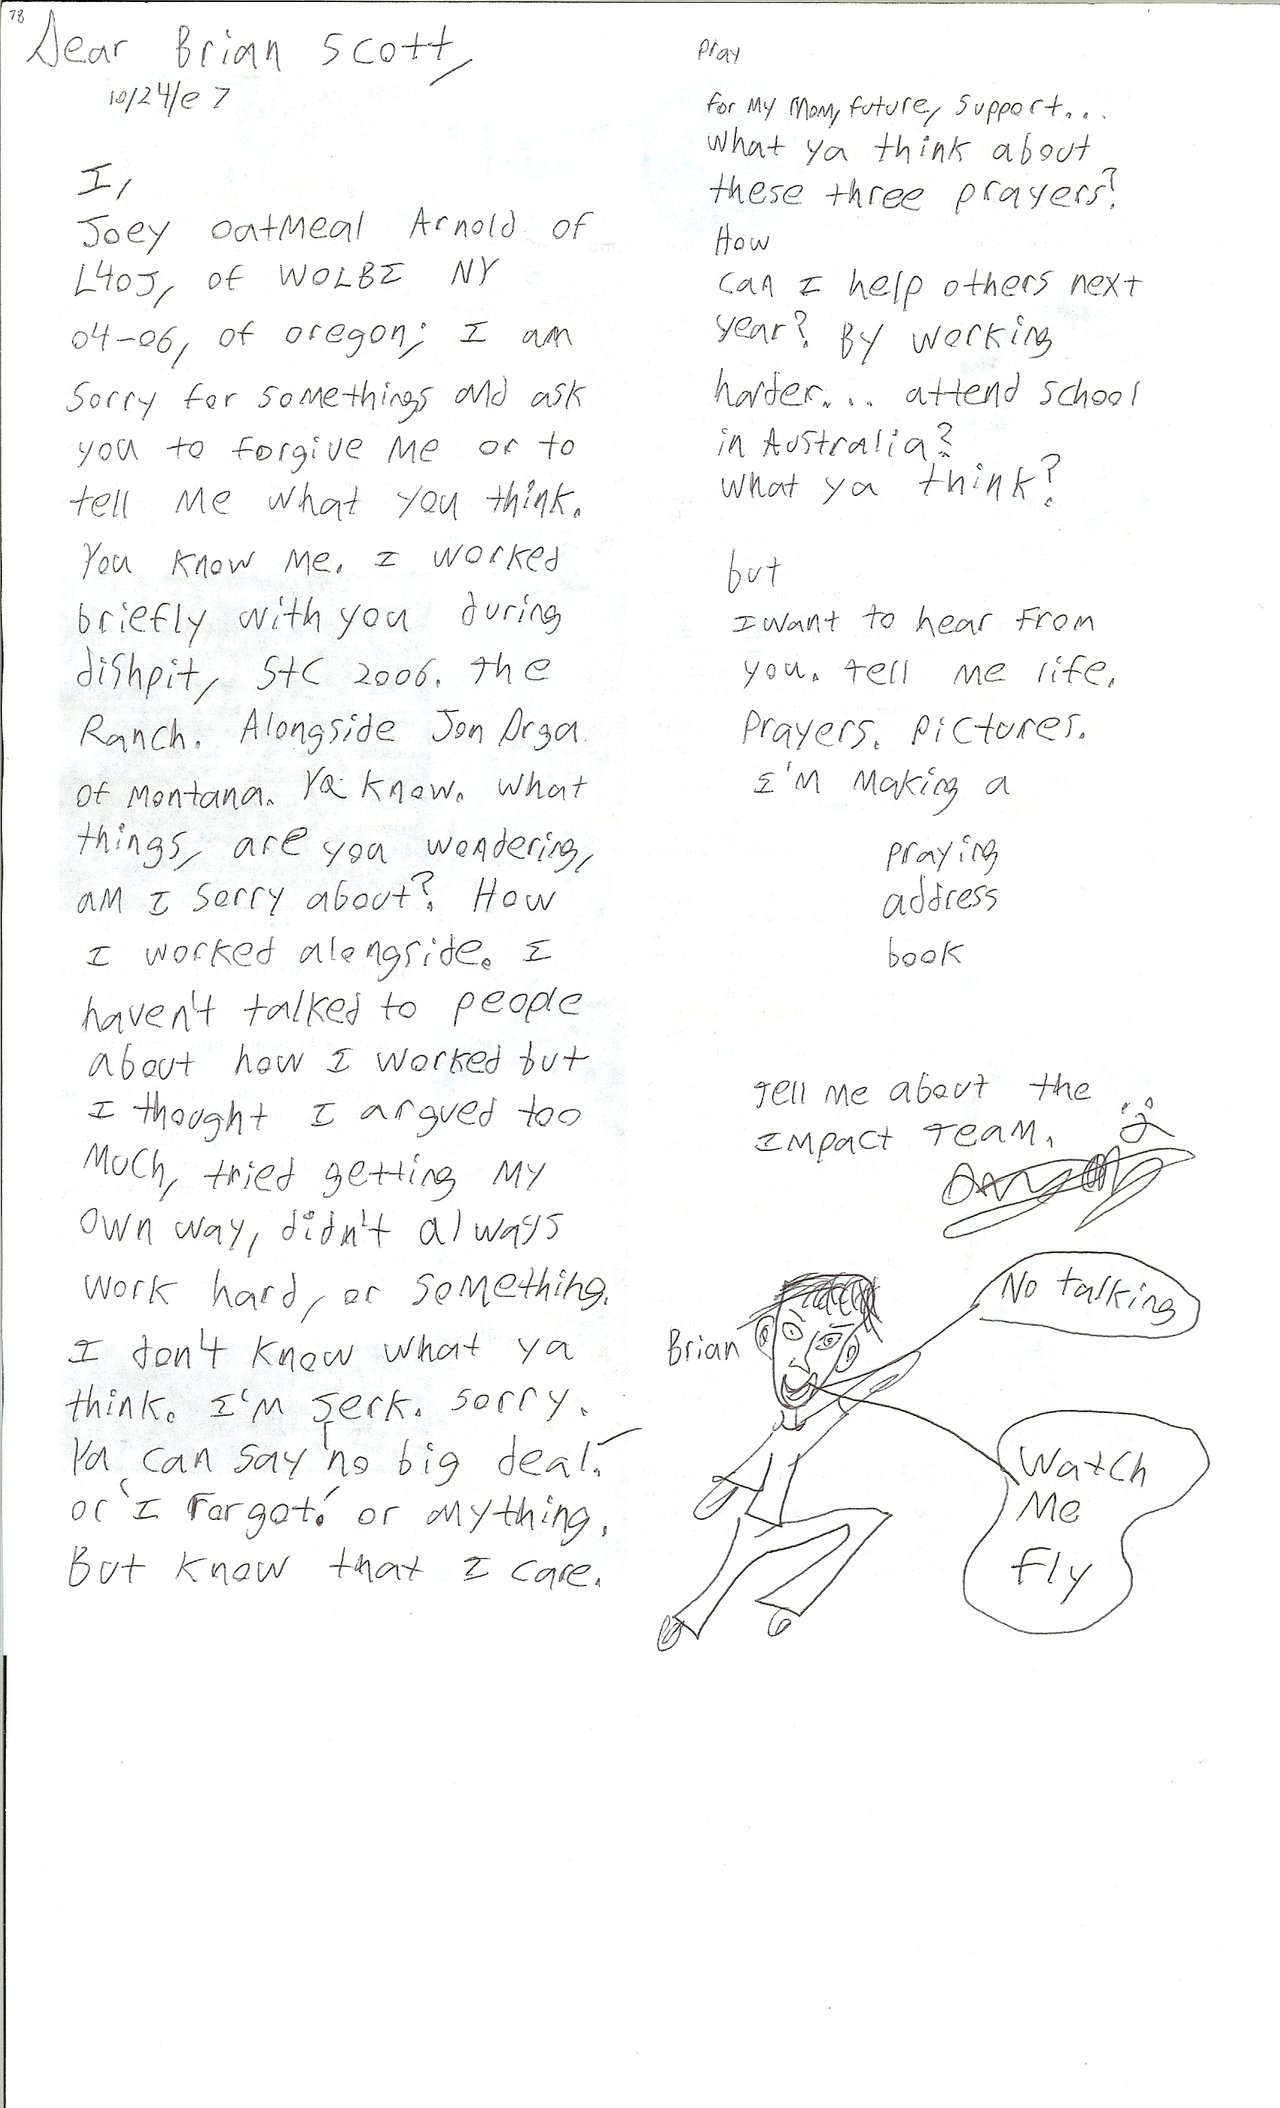 78
Dear Brian Scott,
10/24/07
I,
Joey oatmeal Arnold of
L4OJ, of WOLBI NY
04-06, of oregon; I am
sorry for somethings and ask
you to forgive me or to
tell me what you think.
You know me. I worked
briefly with you during
dishpit, StC 2006. The
Ranch. Alongside Jon Orga
of Montana. Ya know. what
things, are you wondering,
am I sorry about? How
I worked alongside. I
haven't talked to people
about how I worked but
I thought I argued too
much, tried getting my
own way, didn't always
work hard, or something.
I don't know what ya
think. I'm jerk. sorry.
Ya can say 'no big deal.'
or 'I forgot.' or anything.
But know that I care.
pray
for my mom, future, support...
what ya think about
these three prayers?
How
can I help others next
year? By working
harder... attend school
in Australia?
what ya think?
but
I want to hear from
you. tell me life.
prayers. pictures.
I'm making a
praying
address
book
Tell me about the
impact team.
No talking
Brian
Watch
Me
fly